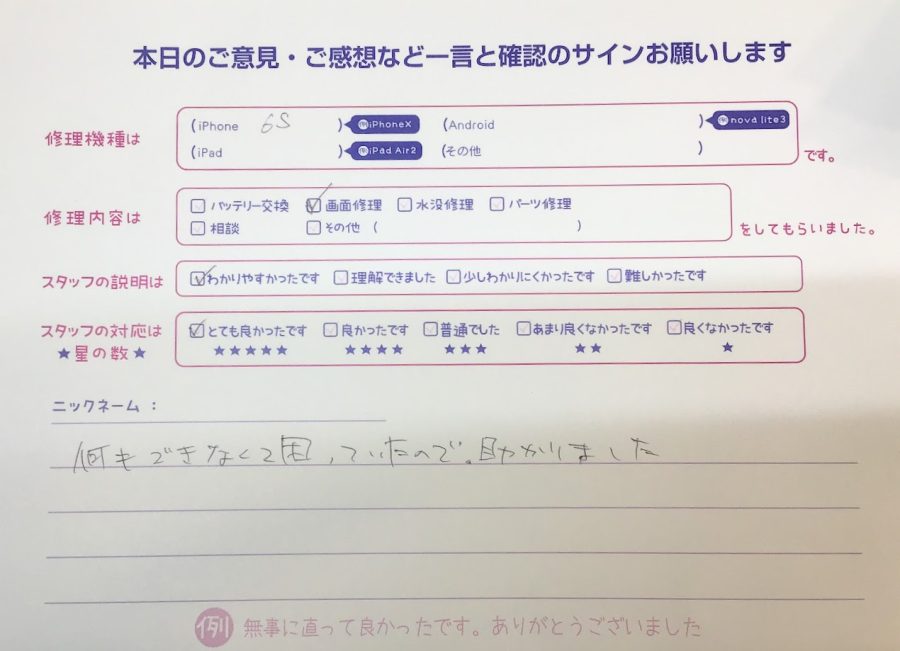 本日のご意見・ご感想など一言と確認のサインお願いします
修理機種は
(iPhone 6S ) 例iPhoneX (Android ) 例nova lite3
(iPad ) 例iPad Air2 (その他 ) です。
修理内容は
バッテリー交換 画面修理 水没修理 パーツ修理
相談 その他 ( ) をしてもらいました。
スタッフの説明は わかりやすかったです 理解できました 少しわかりにくかったです 難しかったです
スタッフの対応は とても良かったです 良かったです 普通でした あまり良くなかったです 良くなかったです
★星の数★ ★★★★★ ★★★★ ★★★ ★★ ★
ニックネーム：
何もできなくて困っていたので、助かりました
例 無事に直って良かったです。ありがとうございました